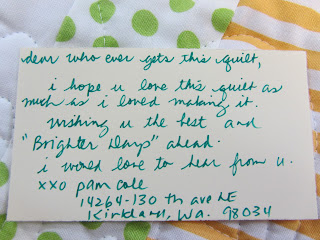 dear who ever gets this quilt,
i hope u love this quilt as
much as i loved making it.
wishing u the best and
"Brighter Days" ahead.
i would love to hear from u.
xxo pam cole
14264-130 th ave NE
Kirkland, WA. 98034